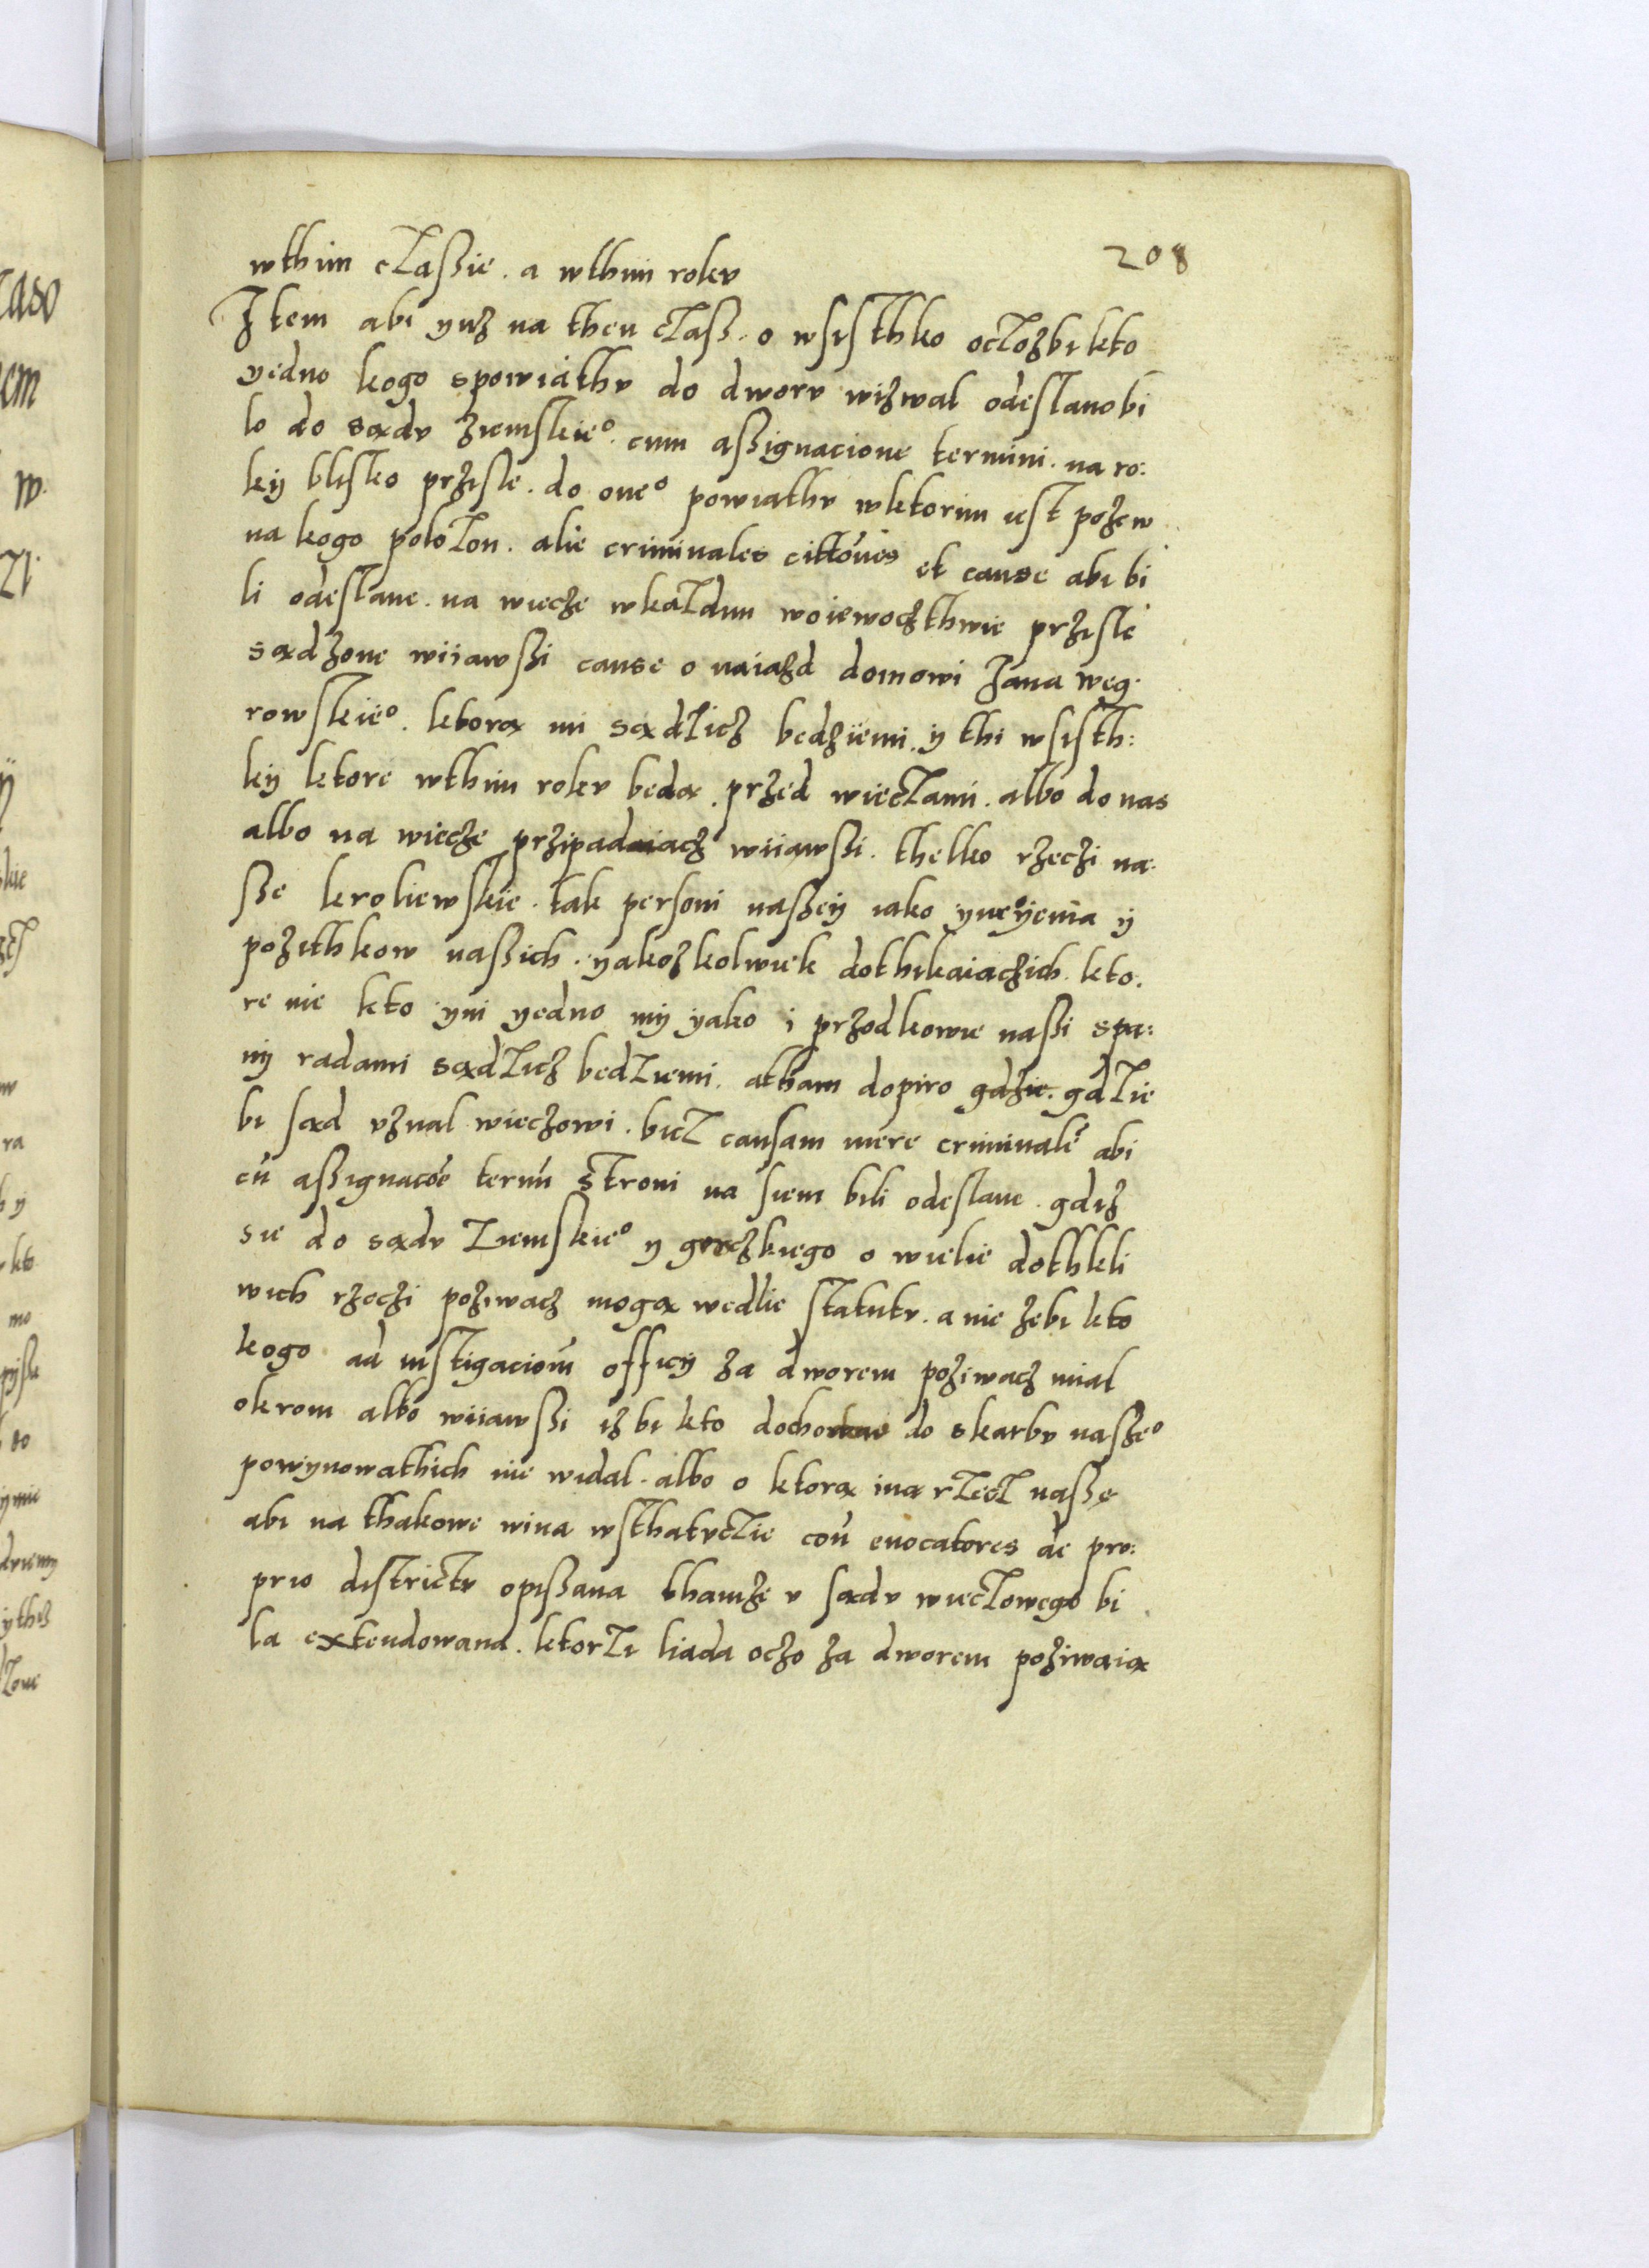 208
wthim czaßie . a wthim roku
Item abi yuz na then czaß . o wsisthko oczozbi kto
yedno kogo spowiathv do dworv wizwal odeslano bi
lo do sądv ziemskieo. cum assignacione termini . na ro:
kÿ blisko przisle . do oneo powiathv wktorim iest pozew
na kogo polozon . alie criminales cittones et cause abi bi
li odeslane . na wiecze wkazdim woiewoczthwie prziste
sądzone wiiawßi cause o naiazd domowi Jana Weg:
rowskieo . ktorą mi sądzicz bedziemi . ÿ thi wsisth:
kÿ ktore wthim rokv bedą . przed wieczami . albo do nas
albo na wiecze przipadaiacz wiiawßi . thelko rzeczi na:
ße kroliewskie . tak personi naßeÿ iako ymyenia ÿ
pozithkow naßich . yakozkolwiek dothikaiaczich . kto.
re nie kto yni yedno mÿ yako i przodkowie naßi spa:
nÿ radami sądzicz bedziemi . atham dopiro gdzie . gdzie
bi sąd vznal wieczowi . bicz causam mere criminalē abi
cū assignacōe termī stroni na siem bili odeslane . gdiz
sie do sądv ziemskieo y groczkiego o wielie dothkli
wich rzeczi poziwacz mogą wedlie statutv . a nie zebi kto
kogo ad instigacionē officÿ za dworem poziwacz mial
okrom albo wiiawßi iz bi kto dochodow do skarbv naßeo
powynowathich nie widal . albo o ktorą iną rzecz naßę
abi na thakowe wina wsthatvczie con̄ evocatores de pro:
prio districtv opißana thamze v sądv wieczowego bi
la extendowana . ktorzi liada oczo za dworem poziwaią